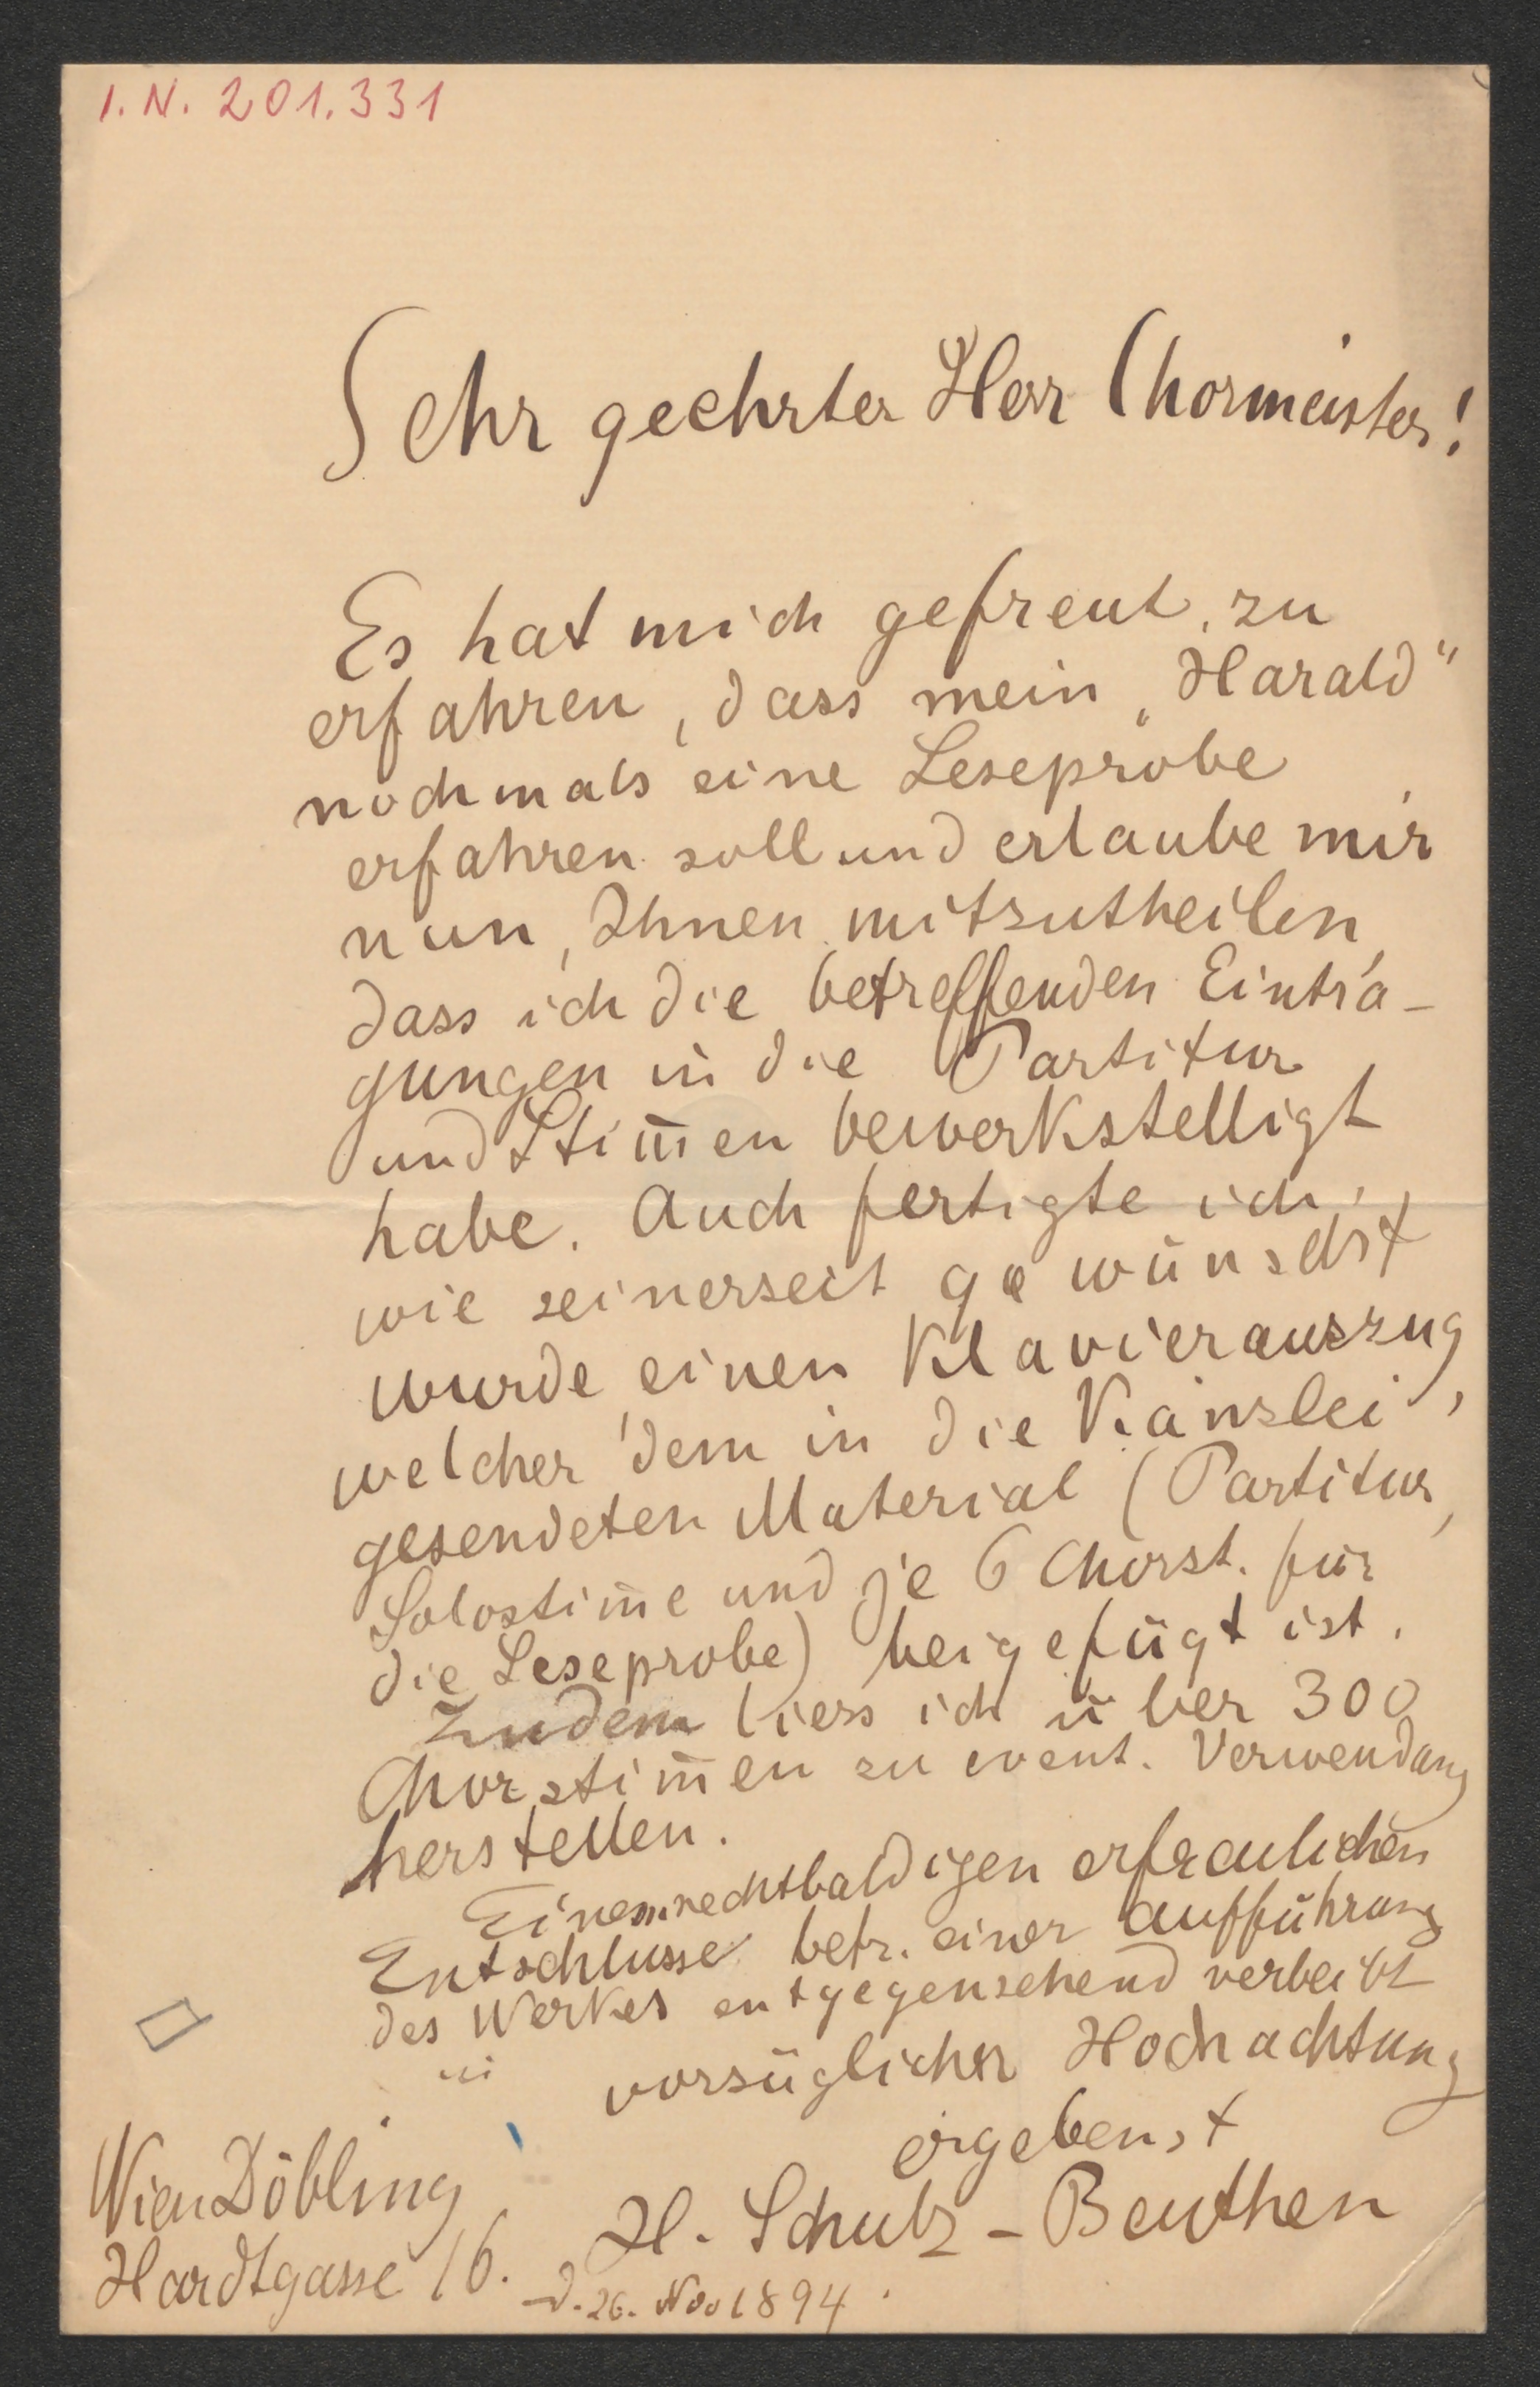 I. N. 201.331
Sehr geehrter Herr Chormeister!
Es hat mich gefreut, zu
erfahren, dass mein „Harald“
nochmals eine Leseprobe
erfahren soll und erlaube mir
nun, Ihnen mitzutheilen,
dass ich die betreffenden Eintra-
gungen in die Partitur
und Stim̄en bewerkstelligt
habe. Auch fertigte ich,
wie seinerzeit gewünscht
wurde, einen Klavierauszug,
welcher dem in die Kanzlei
gesendeten Material (Partitur,
Solostim̄e und je 6 Chorst. für
die Leseprobe) beigefügt ist.
Zudem liess ich über 300
Chorstim̄en zu event. Verwendung
herstellen.
Einem recht baldigen erfreulichen
Entschlusse betr. einer Aufführung
des Werkes entgegensehend verbleibt
in vorzüglicher Hochachtung
ergebenst
H. Schulz-Beuthen
Wien Döbling
Hardtgasse 16.
d. 26. Nov 1894.